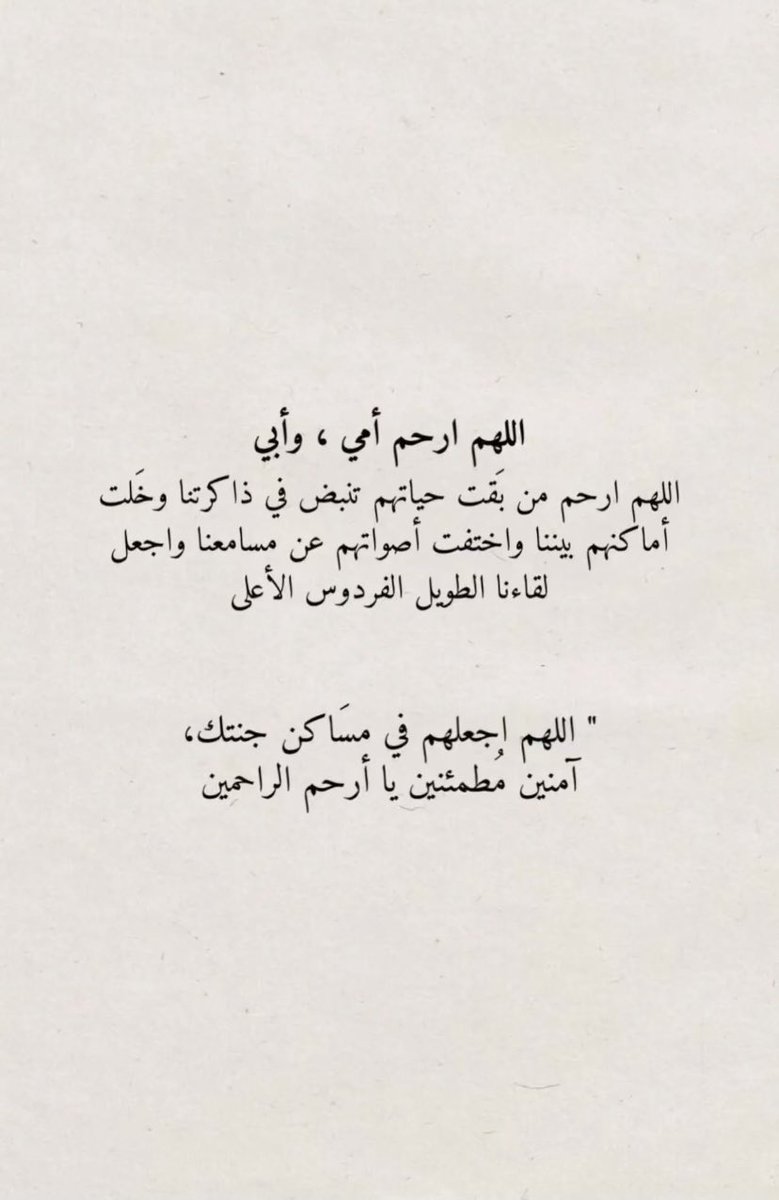 اللهم ارحم أمي ، وأبي
اللهم ارحم من بَقت حياتهم تنبض في ذاكرتنا وخَلت
أماكنهم بيننا واختفت أصواتهم عن مسامعنا واجعل
لقاءنا الطويل الفردوس الأعلى
" اللهم اجعلهم في مسَاكن جنتك،
آمنين مُطمئنين يا أرحم الراحمين